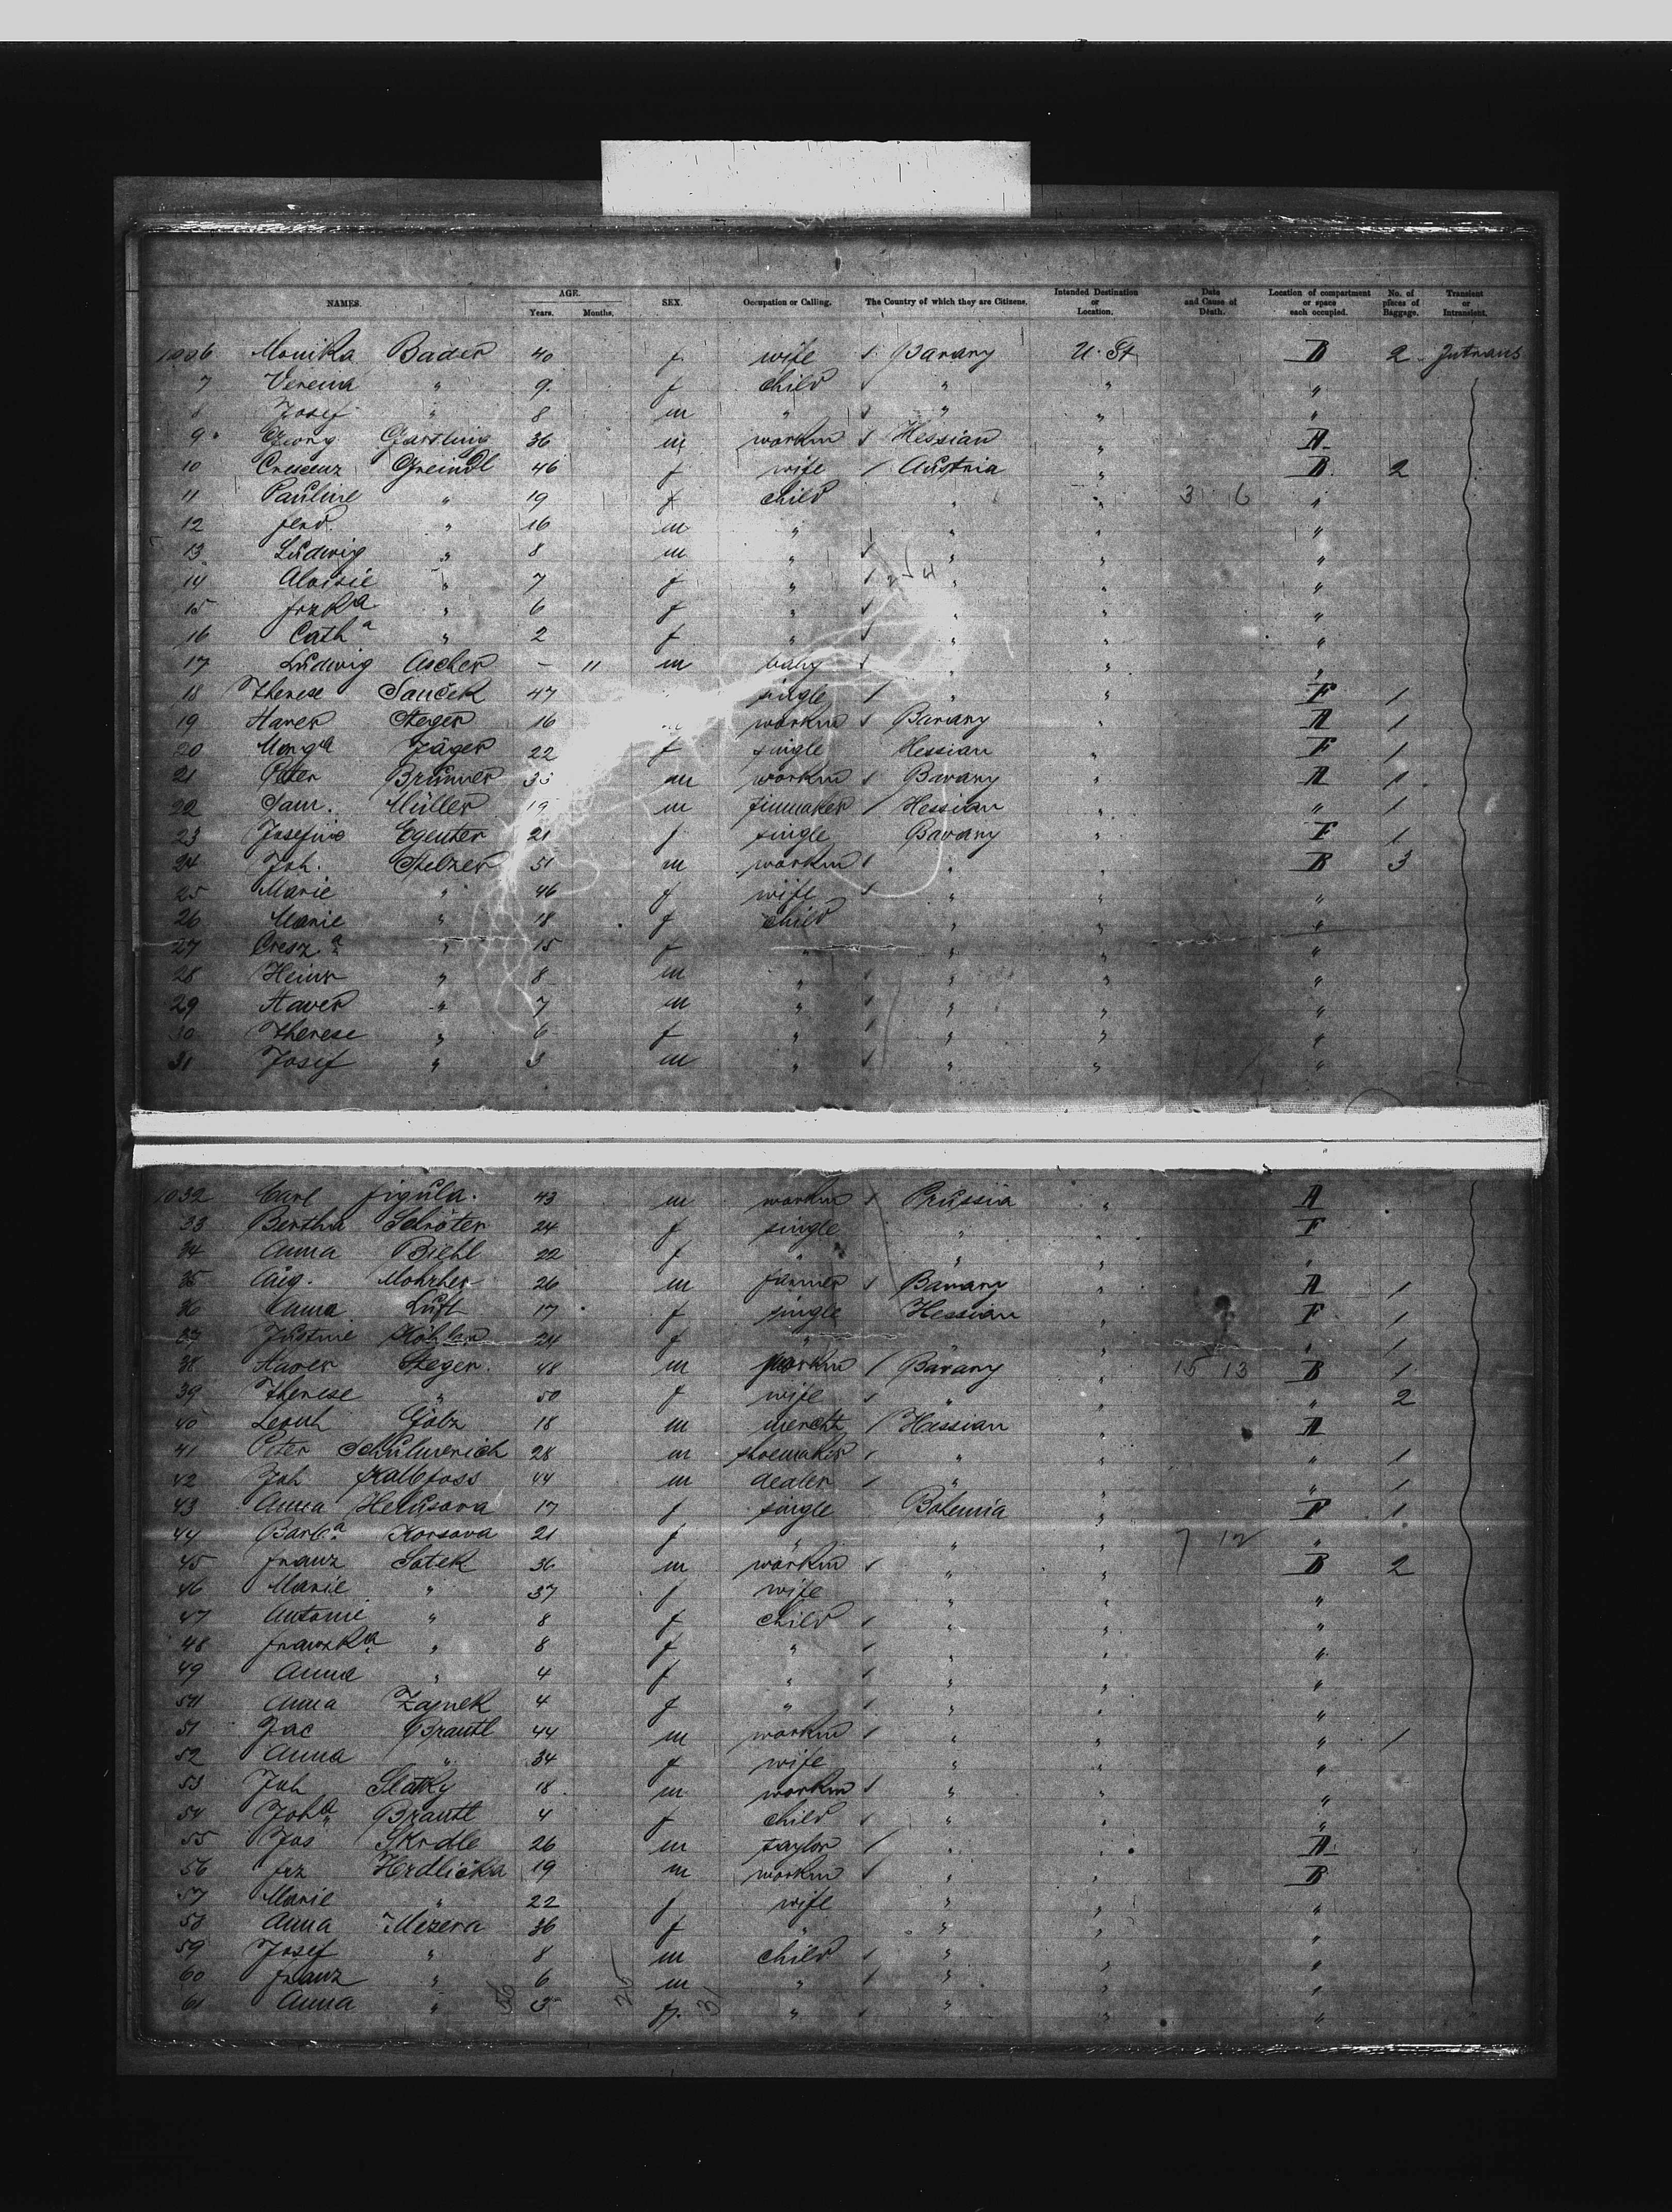 NAMES. AGE. Years. Months. SEX. Occupation or Calling. The Country of which they are Citizens. Intended Destination or Location. Date and Cause of Death. Location of compartment or space each occupied. No. of pieces of Baggage. Transient or Intransient.
1006 Monika Bader 40 f wife Bavary U. St B 2 Intrans
7 Verena " 9 f child " " "
8 Josef " 8 m " " " "
9 Georg 36 m workm Hessian " A
10 Crescenz Greindl 46 f wife Austria " B 2
11 Pauline " 19 f child " " 3 6 "
12 ferd. " 16 m " " " "
13 Ludwig " 8 m " " " "
14 Aloisie " 7 f " " " "
15 frzka " 6 f " " " "
16 Catha " 2 f " " " "
17 Ludwig Ascher - 11 m baby " " "
18 Therese Sauček 47 single " " F 1
19 Xaver Steger 16 workm Bavary " A 1
20 Jäger 22 f single Hessian " F 1
21 Peter Brunner m workm Bavary " A 1
22 Sam. Müller 19 m Hessian " " 1
23 Josefine Egenter 21 f single Bavary " F 1
24 Joh. Stelzer 51 m workm " " B 3
25 Marie " 46 f wife " " "
26 Marie " 18 f child " " "
27 Cresza " 15 f " " " "
28 Heinr " 8 m " " " "
29 Xaver " 7 m " " " "
30 Therese " 6 f " " " "
31 Josef " 3 m " " " "
1032 Carl figula. 43 m workm Prussia " A
33 Bertha Schröter 24 f single " " F
34 Anna Biehl 22 f " " " "
35 Aug. 26 m farmer Bavary " A 1
36 Anna Luft 17 f single Hessian " F 1
37 Justine Köhler 24 f " " " " 1
38 Xaver Steger. 48 m workm Bavary " 15 13 B 1
39 Therese " 50 f wife " " " 2
40 Leonh Götz 18 m mercht Hessian " A
41 Peter Schulmerich 28 m shoemaker " " " 1
42 Joh 44 m dealer " " " 1
43 Anna Herusova 17 f single Bohemia " F 1
44 Barba Korsova 21 f " " " 7 12 "
45 franz Sotek 36 m workm " " B 2
46 Marie " 37 f wife " " "
47 Antonie " 8 f child " " "
48 franzka " 8 f " " " "
49 Anna " 4 f " " " "
50 Anna Zajnek 4 f " " " "
51 Jac Brautl 44 m workm " " " 1
52 Anna " 34 f wife " " "
53 Joh Slatky 18 m workm " " "
54 Joha Brautl 4 f child " " "
55 Jos Skrdle 26 m taylor " " A
56 frz Hrdlička 19 m workm " " B
57 Marie " 22 f wife " " "
58 Anna Mezera 36 f " " " "
59 Josef " 8 m child " " "
60 franz " 6 m " " " "
61 Anna " 3 f. " " " "
56 25 31